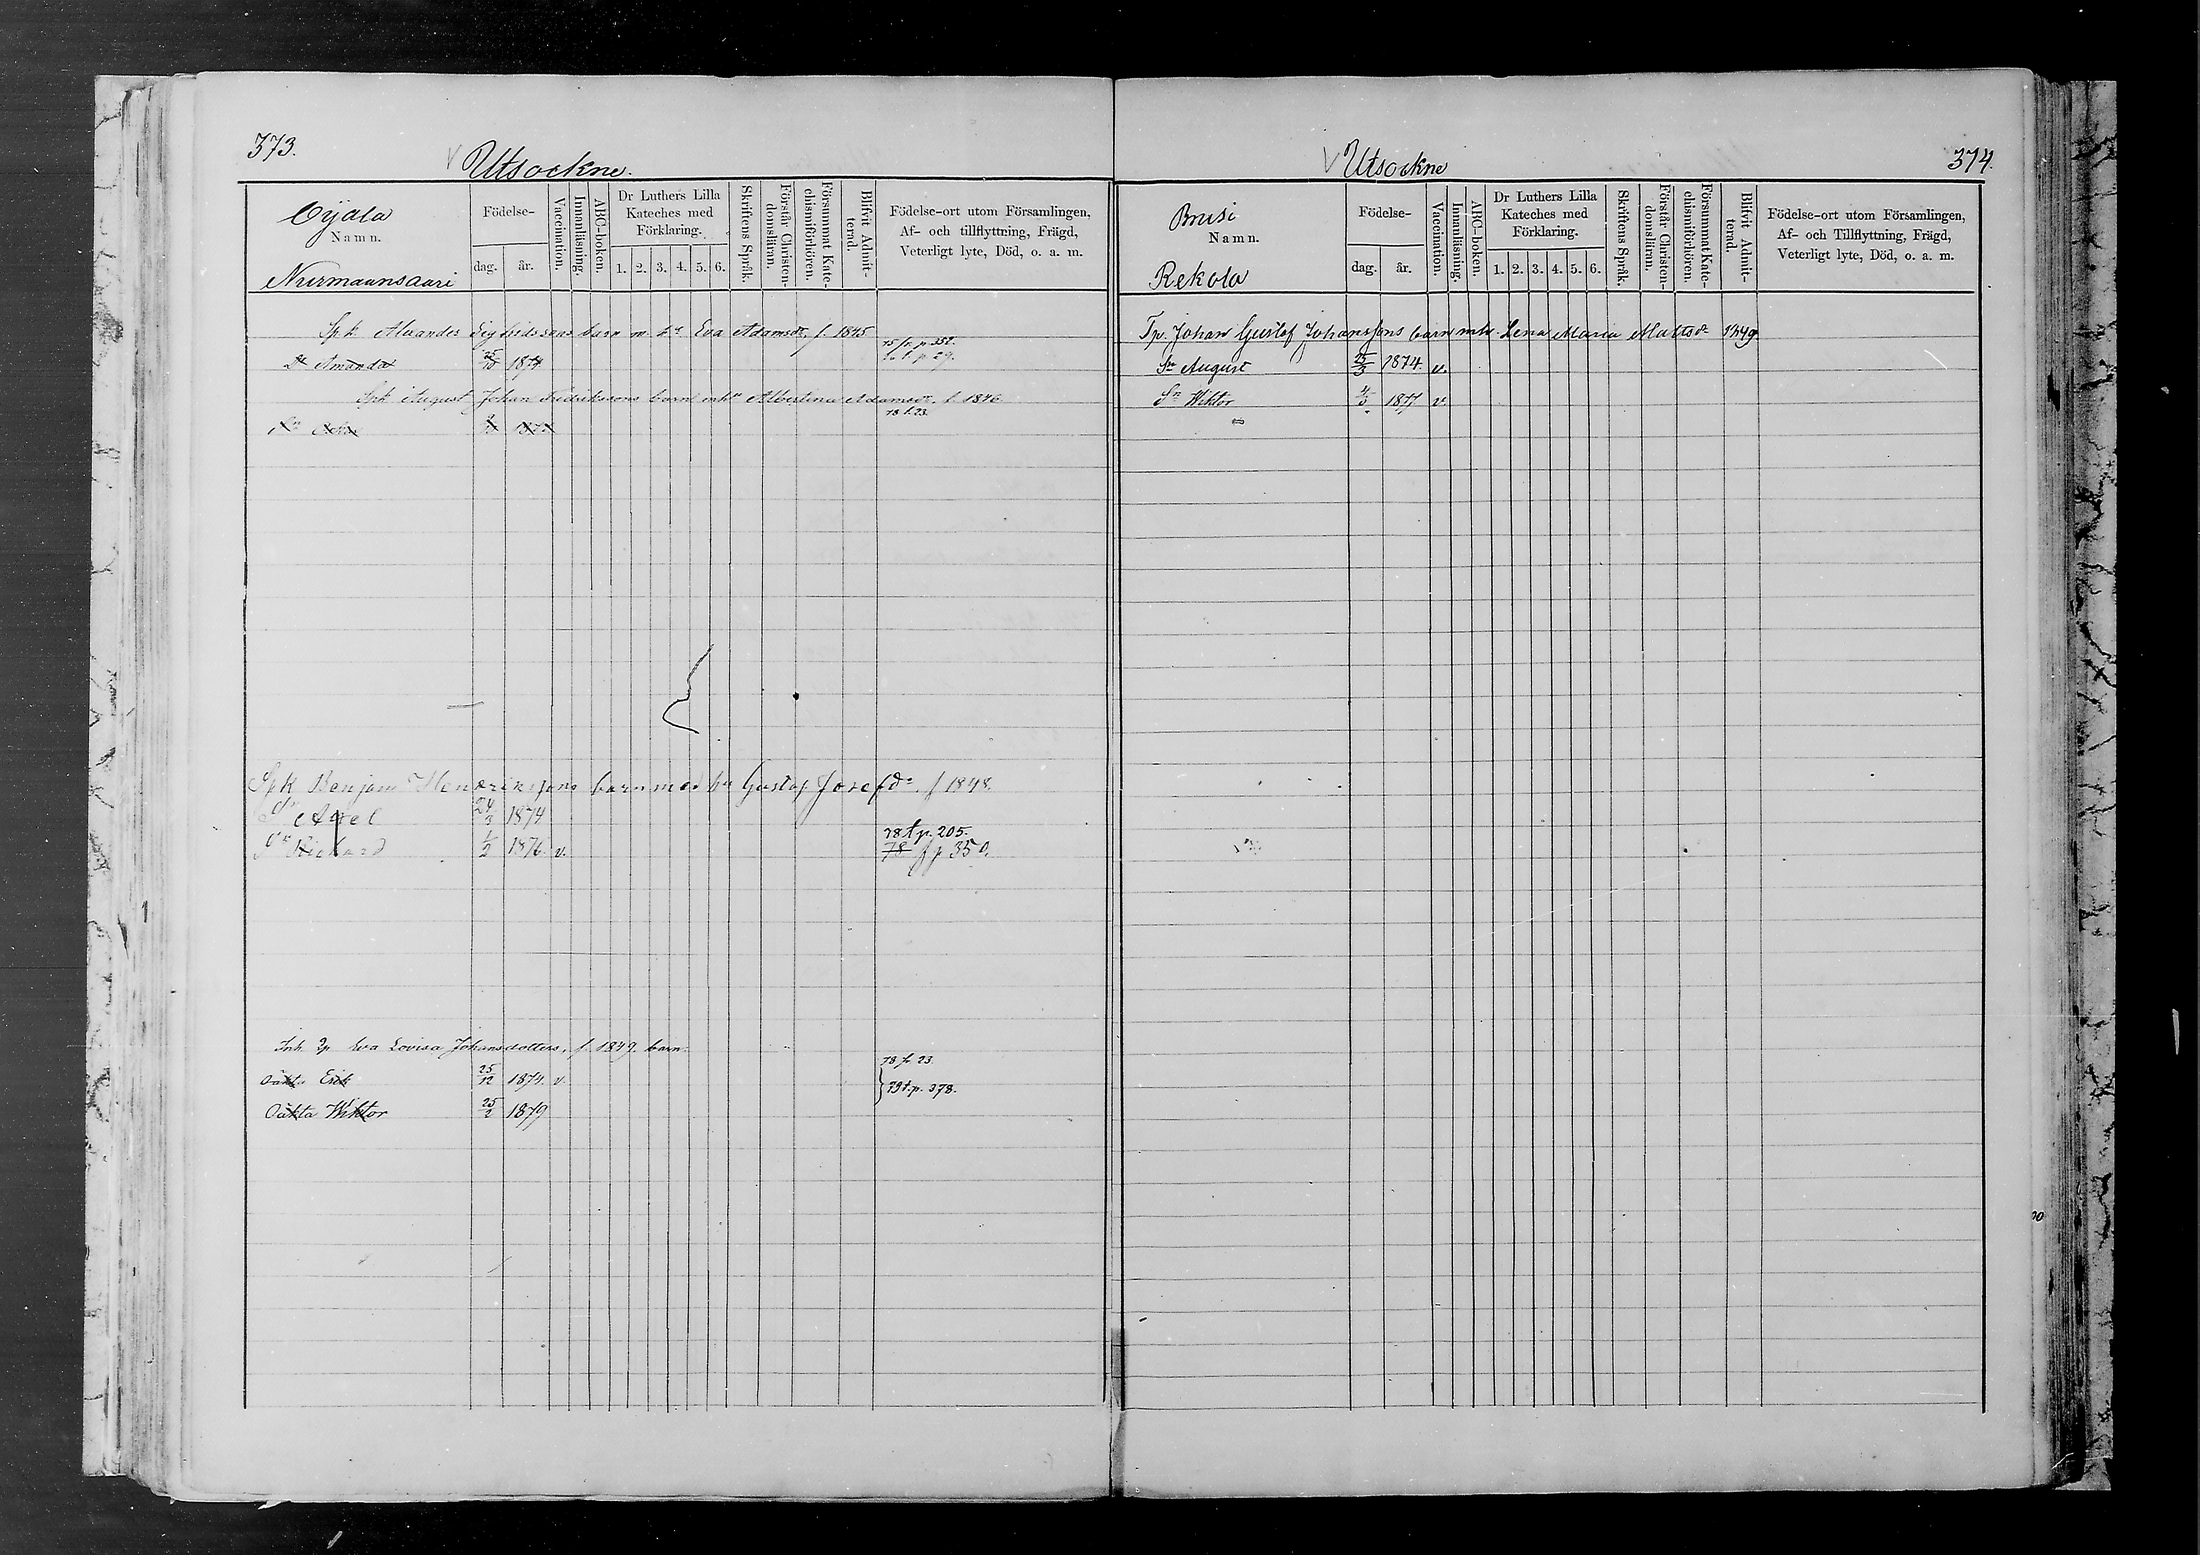 373.
Utsockne.
Öijala
Namn.
Nurmaansaari
Födelse-
dag. år.
Vaccination.
Innanläsning.
ABC-boken.
Dr Luthers Lilla
Kateches med
Förklaring.
1. 2. 3. 4. 5. 6.
Skriftens Språk.
Förstår Christen-
domsläran.
Försummat Kate-
chismiförhören.
Blifvit Admit-
terad.
Födelse-ort utom Församlingen,
Af- och tillflyttning, Frägd,
Veterligt lyte, Död, o. a. m.
Spk Alexander Sigfridssons barn m. h. Eva Adamsdr, f. 1845
75 fr. p. 352.
Dr Amanda 25/10 1874 t. p. 29.
Spk August Johan Fredrikssons barn mhu Albertina Adamsdr. f. 1846
78 f. 23.
Sn
Spk Benjam Henrikssons barn med hu Gustaf Josefdr. f 1848.
Sn Axel 24/3 1874
78 t p. 205.
Sn Rickard 1/2 1876. v. 78 f p 350.
Inh. Eva Lovisa Johansdotters, f. 1849. barn.
78 f. 23
Oäkta Erik 25/12 1874. v. 79 t. p. 378.
Oäkta Wiktor 25/2 1879
Utsockne
374.
Brusi
Namn.
Rekola
Födelse-
dag. år.
Vaccination.
Innanläsning.
ABC-boken.
Dr Luthers Lilla
Kateches med
Förklaring.
1. 2. 3. 4. 5. 6.
Skriftens Språk.
Förstår Christen-
domsläran.
Försummat Kate-
chismiförhören.
Blifvit Admit-
terad.
Födelse-ort utom Församlingen,
Af- och Tillflyttning, Frägd,
Veterligt lyte, Död, o. a. m.
Tp. Johan Gustaf Johanssons barn mhu. Lena Maria Mattsdr 1849.
Sn August 25/3 1874. v.
Sn Wiktor 4/5 1877. v.